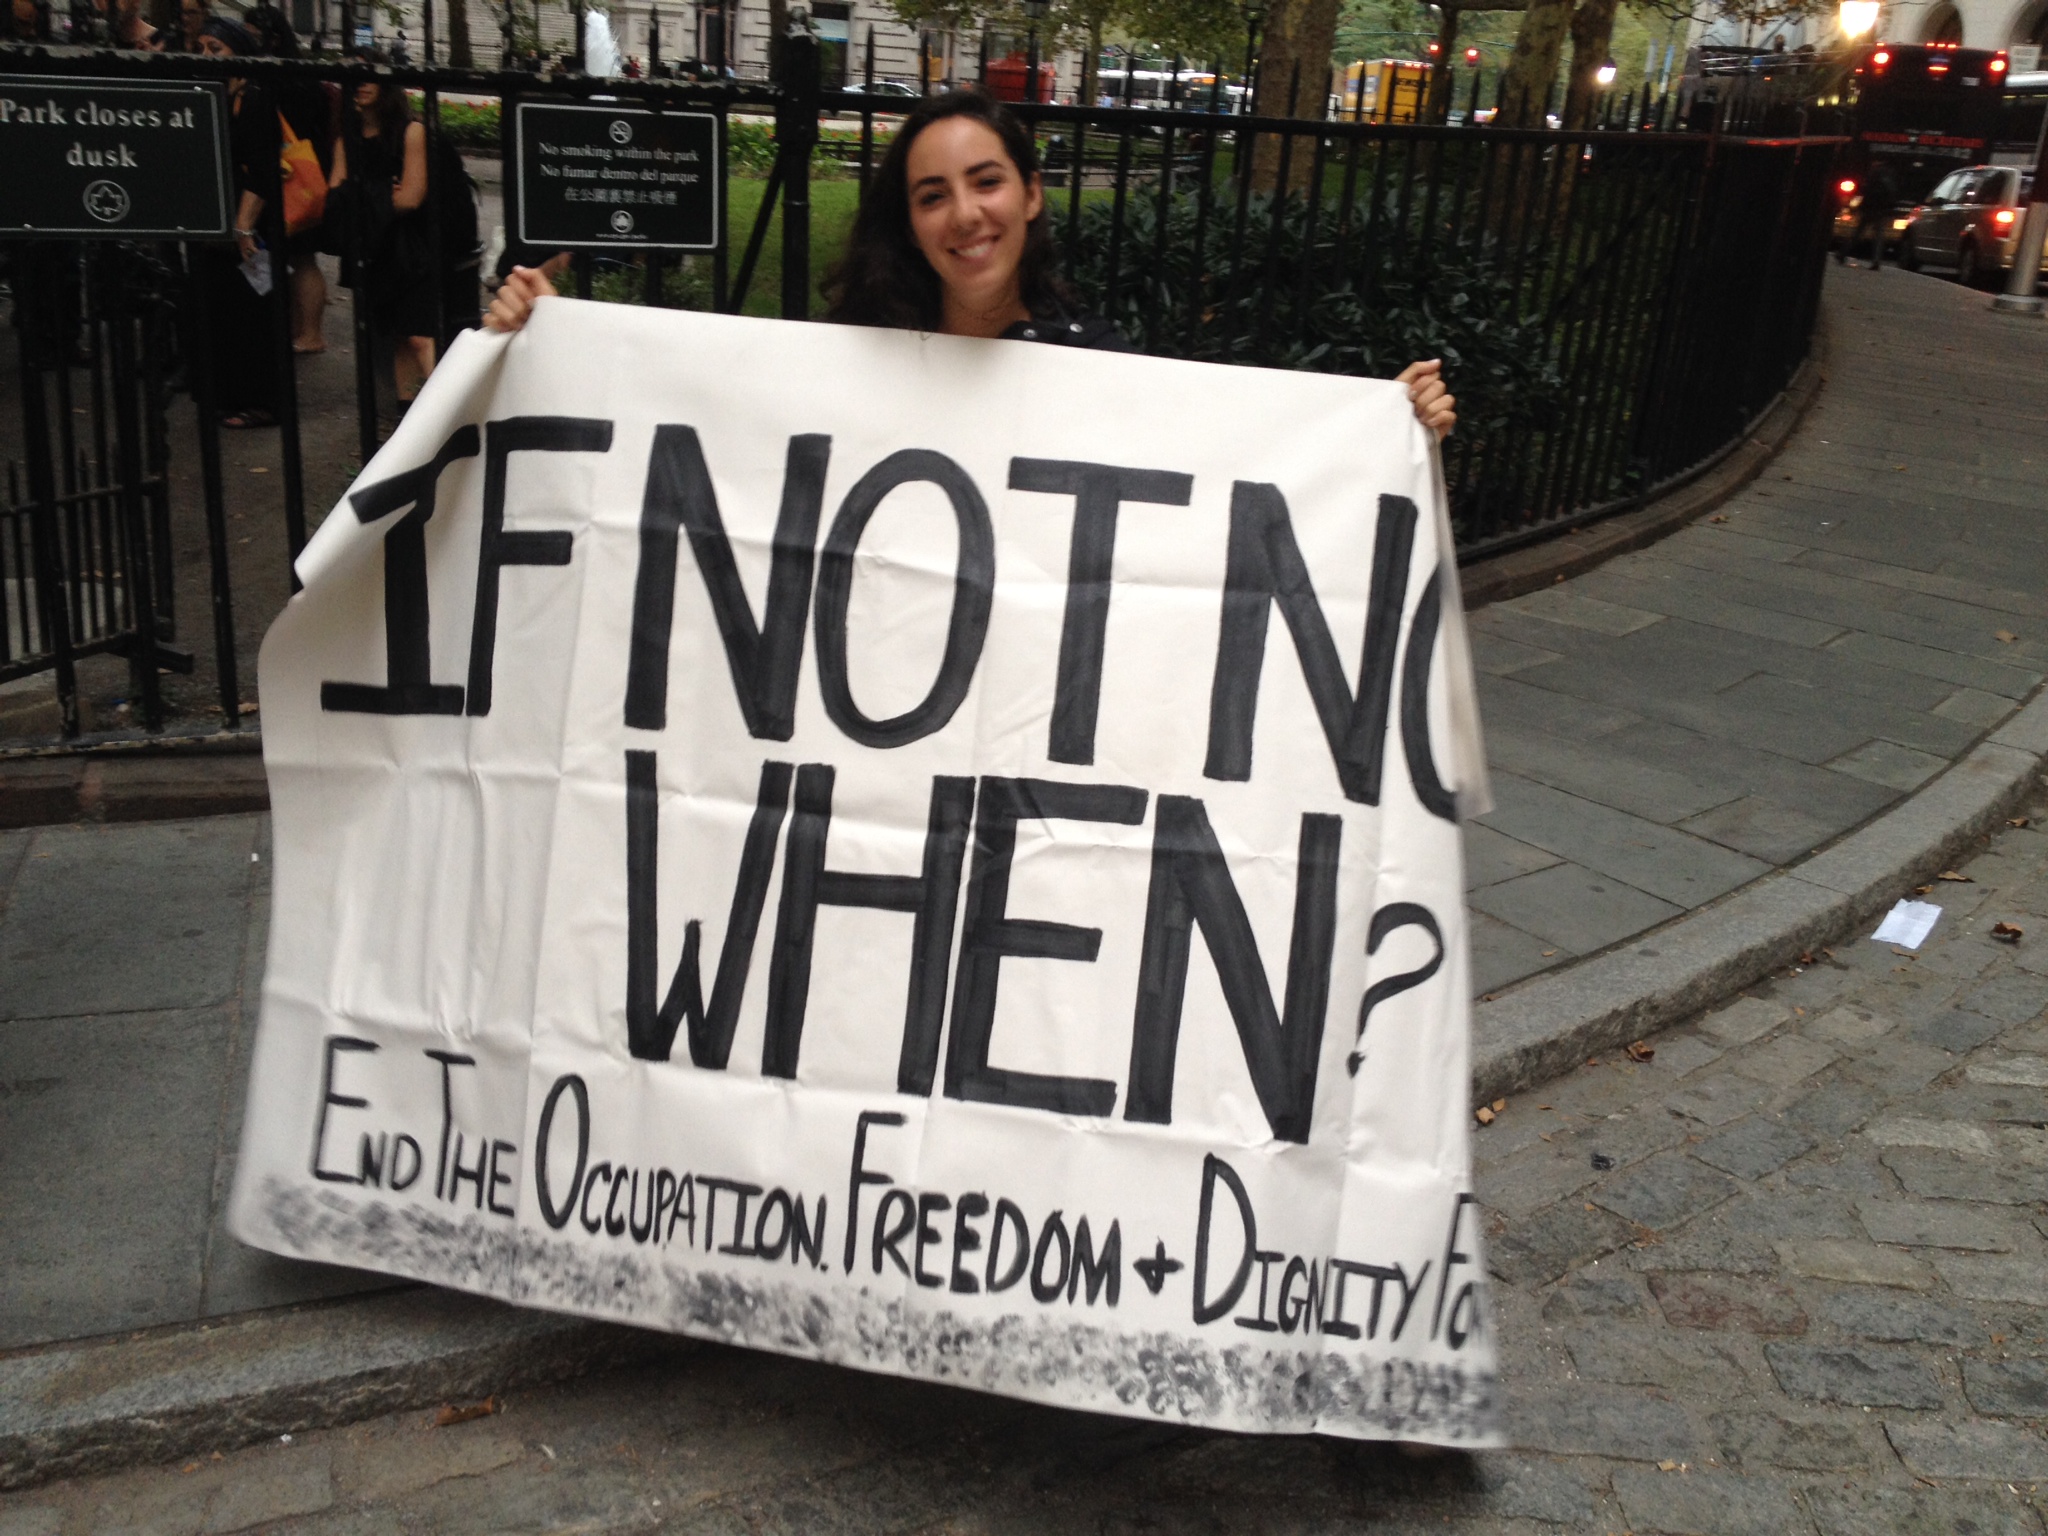 Park closes at
dusk
No smoking within the park
No fumar dentro del parque
在公園裏禁止吸煙
IF NOT NO
WHEN?
END THE OCCUPATION. FREEDOM + DIGNITY FO